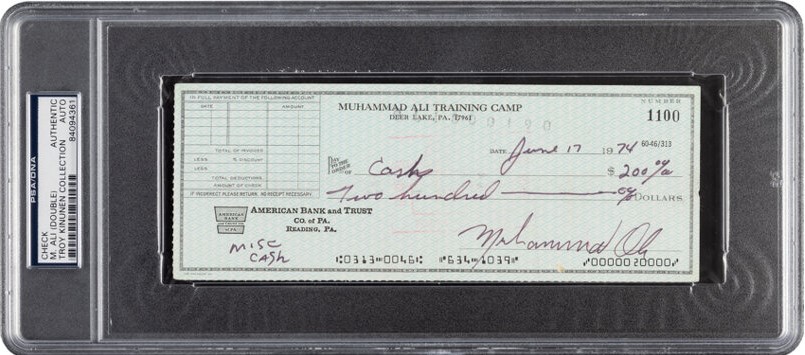 PSA/DNA
CHECK
M. ALI (DOUBLE) AUTHENTIC
TROY KINUNEN COLLECTION AUTO
84094361
IN FULL PAYMENT OF THE FOLLOWING ACCOUNT
DATE AMOUNT
TOTAL OF INVOICES
LESS % DISCOUNT
LESS
TOTAL DEDUCTIONS
AMOUNT OF CHECK
IF INCORRECT PLEASE RETURN. NO RECEIPT NECESSARY.
MUHAMMAD ALI TRAINING CAMP
DEER LAKE, PA. 17961
NUMBER
1100
60-46/313
DATE June 17 1974
PAY TO THE ORDER OF Cash $ 200 00/00
Two hundred 00/00 DOLLARS
AMERICAN BANK AND TRUST
CO. OF PA.
READING, PA.
MISC
CASH
Muhammad Ali
⑆0313⑉0046⑆ ⑈634⑉1039⑈ ⑈0000020000⑈